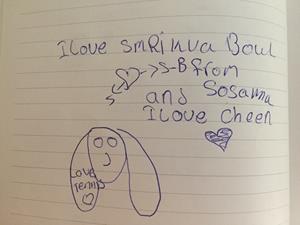 I love SMRiNVa Bowl
S-B from
and Sosanna
I Love cheen
Love
Tennis